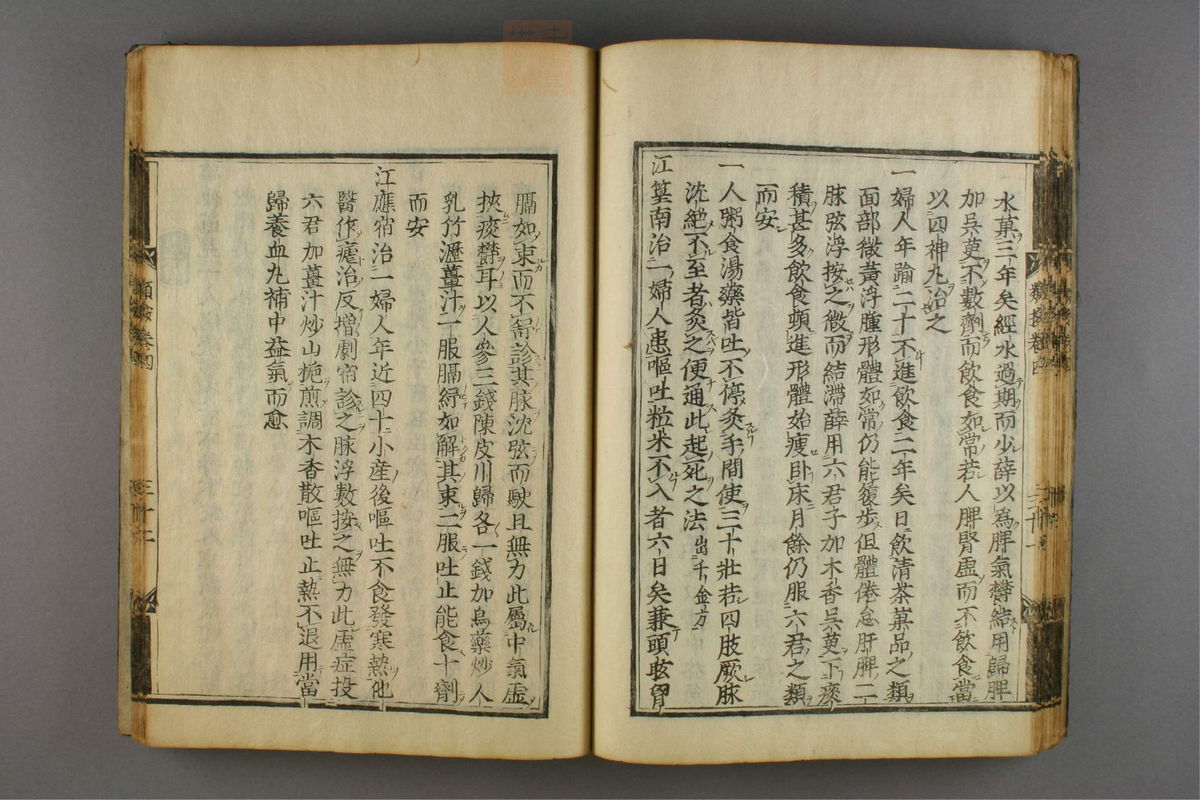 水菓三年矣經水過期而少薛以爲脾氣鬱結用歸脾
加吳茰不數劑而飲食如常若人脾腎虛而不飲食當
以四神丸治之
一婦人年踰二十不進飲食二年矣日飲清茶菓品之類
面部微黃浮腫形體如常仍能履步但體倦怠肝脾二
脉弦浮按之微而結滯薛用六君子加木香吳茰下痰
積甚多飲食頓進形體始瘦卧床月餘仍服六君之類
而安
一人粥食湯藥皆吐不停灸手間使三十壯若四肢厥脉
沈絕不至者灸之便通此起死之法出千金方
江篁南治一婦人患嘔吐粒米不入者六日矣兼頭眩胷
膈如束而不舒診其脉沈弦而駛且無力此屬中氣虛
挾痰鬱耳以人參三錢陳皮川歸各一錢加烏藥炒人
乳竹瀝薑汁一服膈紓如解其束二服吐止能食十劑
而安
江應宿治一婦人年近四十小産後嘔吐不食發寒熱他
醫作瘧治反增劇宿診之脉浮數按之無力此虛症投
六君加薑汁炒山梔煎調木香散嘔吐止熱不退用當
歸養血丸補中益氣而愈
類案卷四